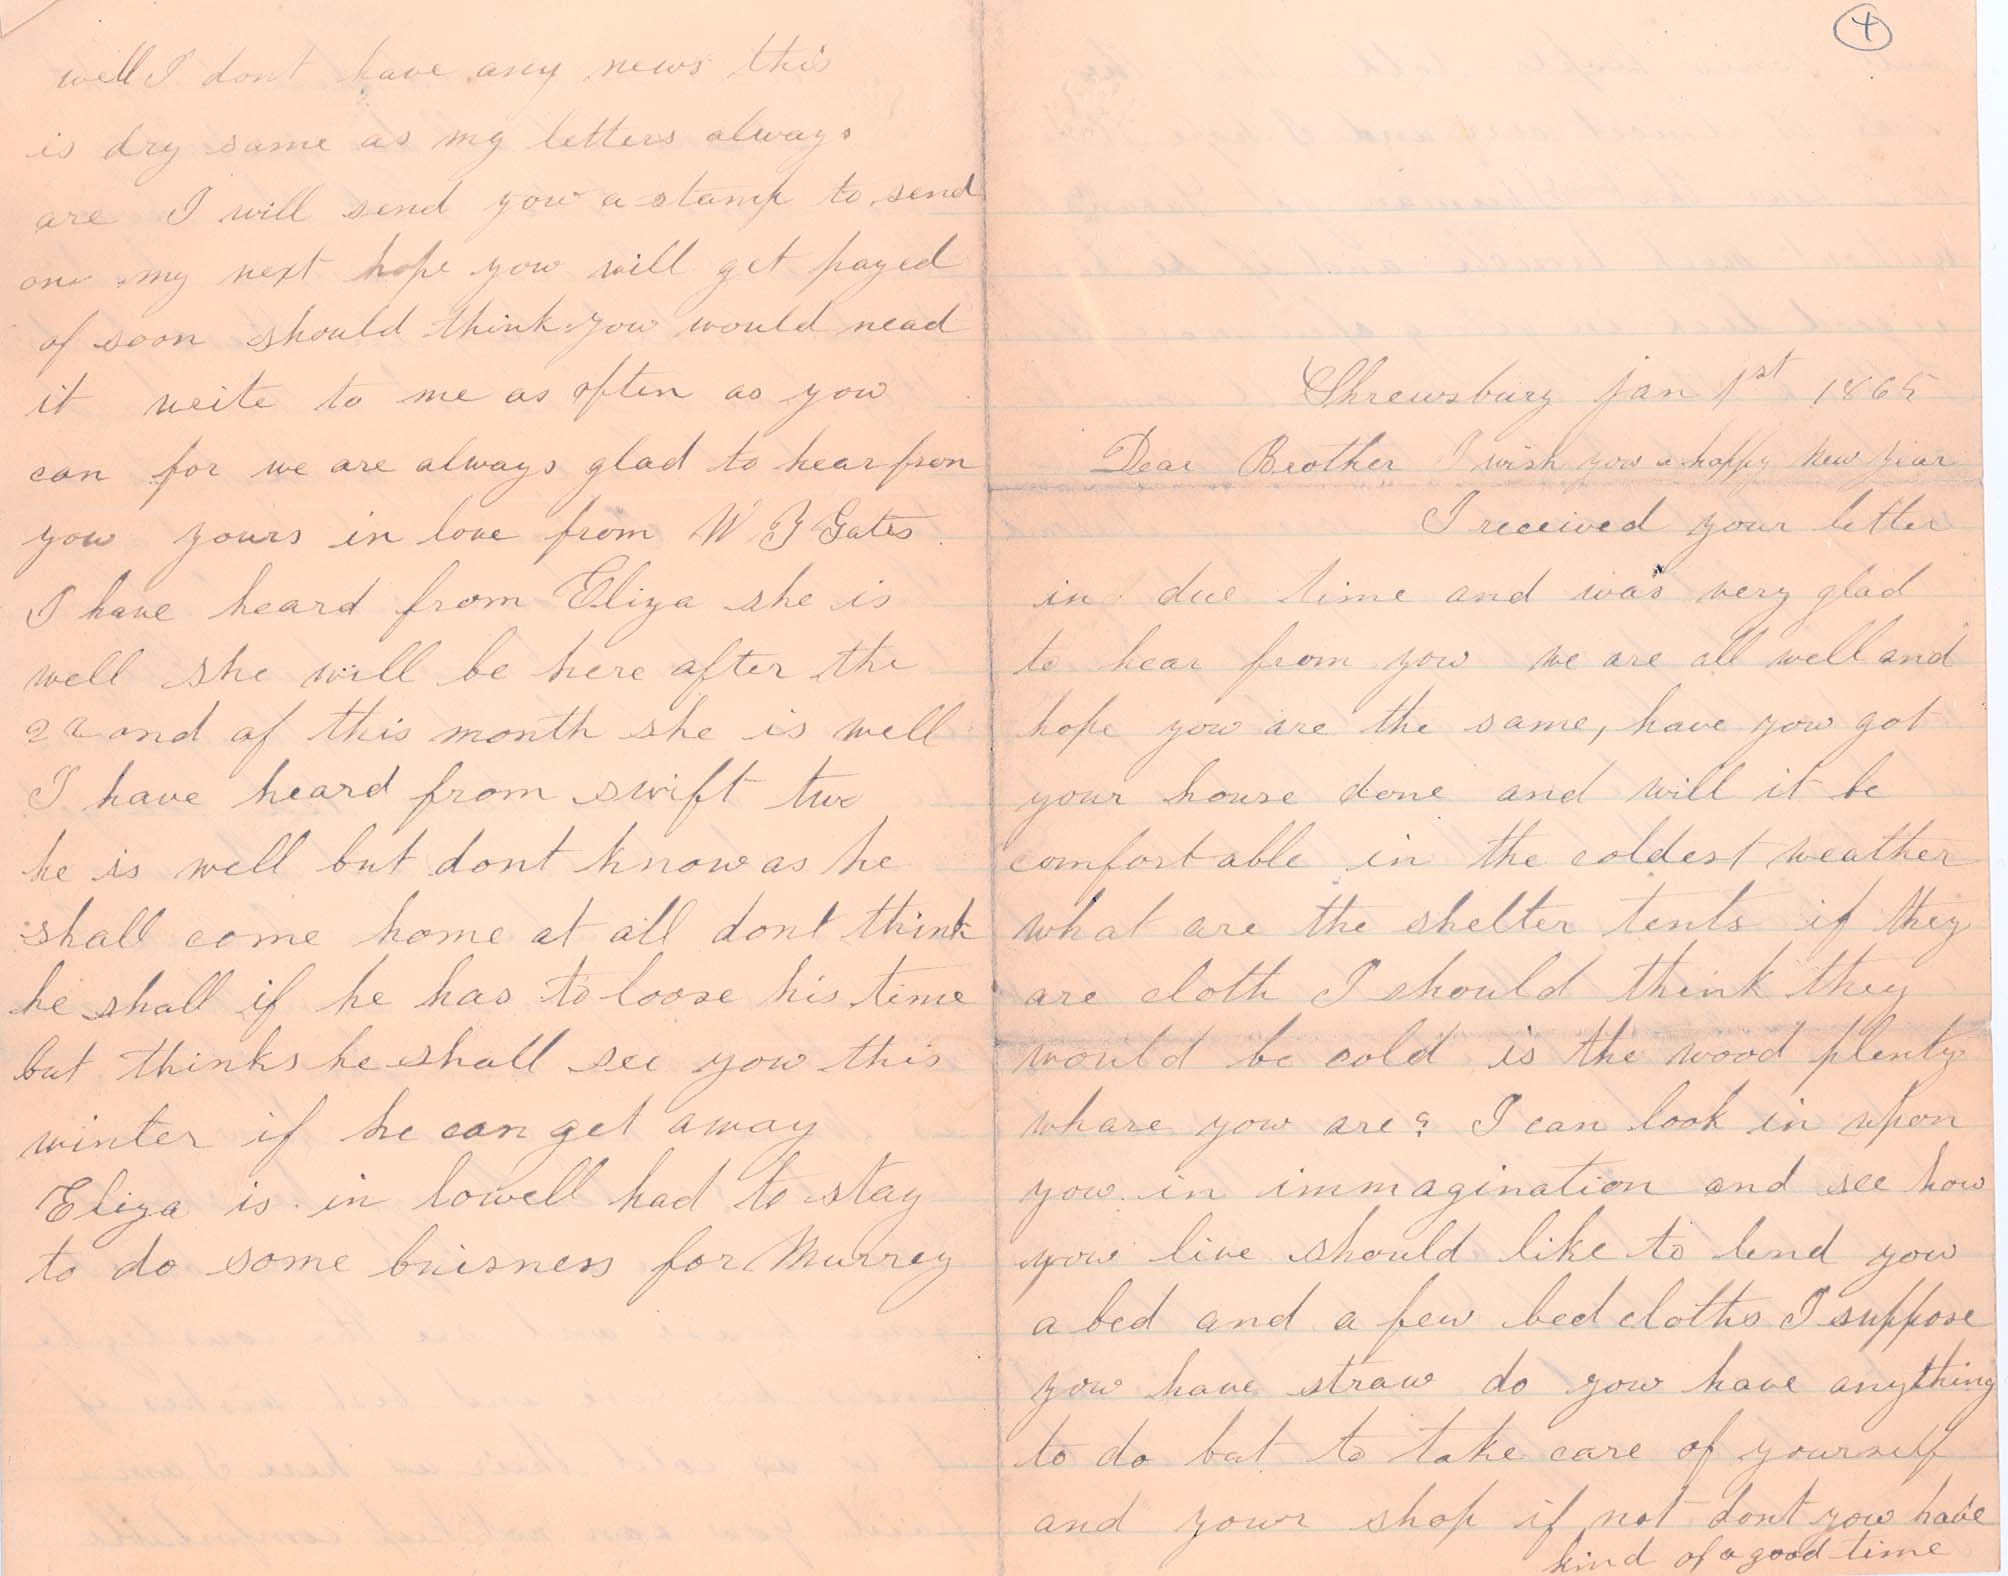 4
Shrewsbury Jan 1st 1865
Dear Brother I wish you a happy New year
I received your letter
in due time and was very glad
to hear from you we are all well and
hope you are the same, have you got
your house done and will it be
comfortable in the coldest weather
what are the shelter tents if they
are cloth I should think they
would be cold is the wood plenty
whare you are? I can look in upon
you in immagination and see how
you live should like to lend you
a bed and a few bed cloths I suppose
you have straw do you have anything
to do but to take care of yourself
and your shop if not dont you have
kind of a good time
well I dont have any news this
is dry same as my letters always
are I will send you a stamp to send
on my next hope you will get payed
of soon should think you would nead
it write to me as often as you
can for we are always glad to hear from
you yours in love from W Gates
I have heard from Eliza she is
well she will be here after the
22and of this month she is well
I have heard from swift two
he is well but dont know as he
shall come home at all dont think
he shall if he has to loose his time
but thinks he shall see you this
winter if he can get away
Eliza is in lowell had to stay
to do some buisness for Murrey